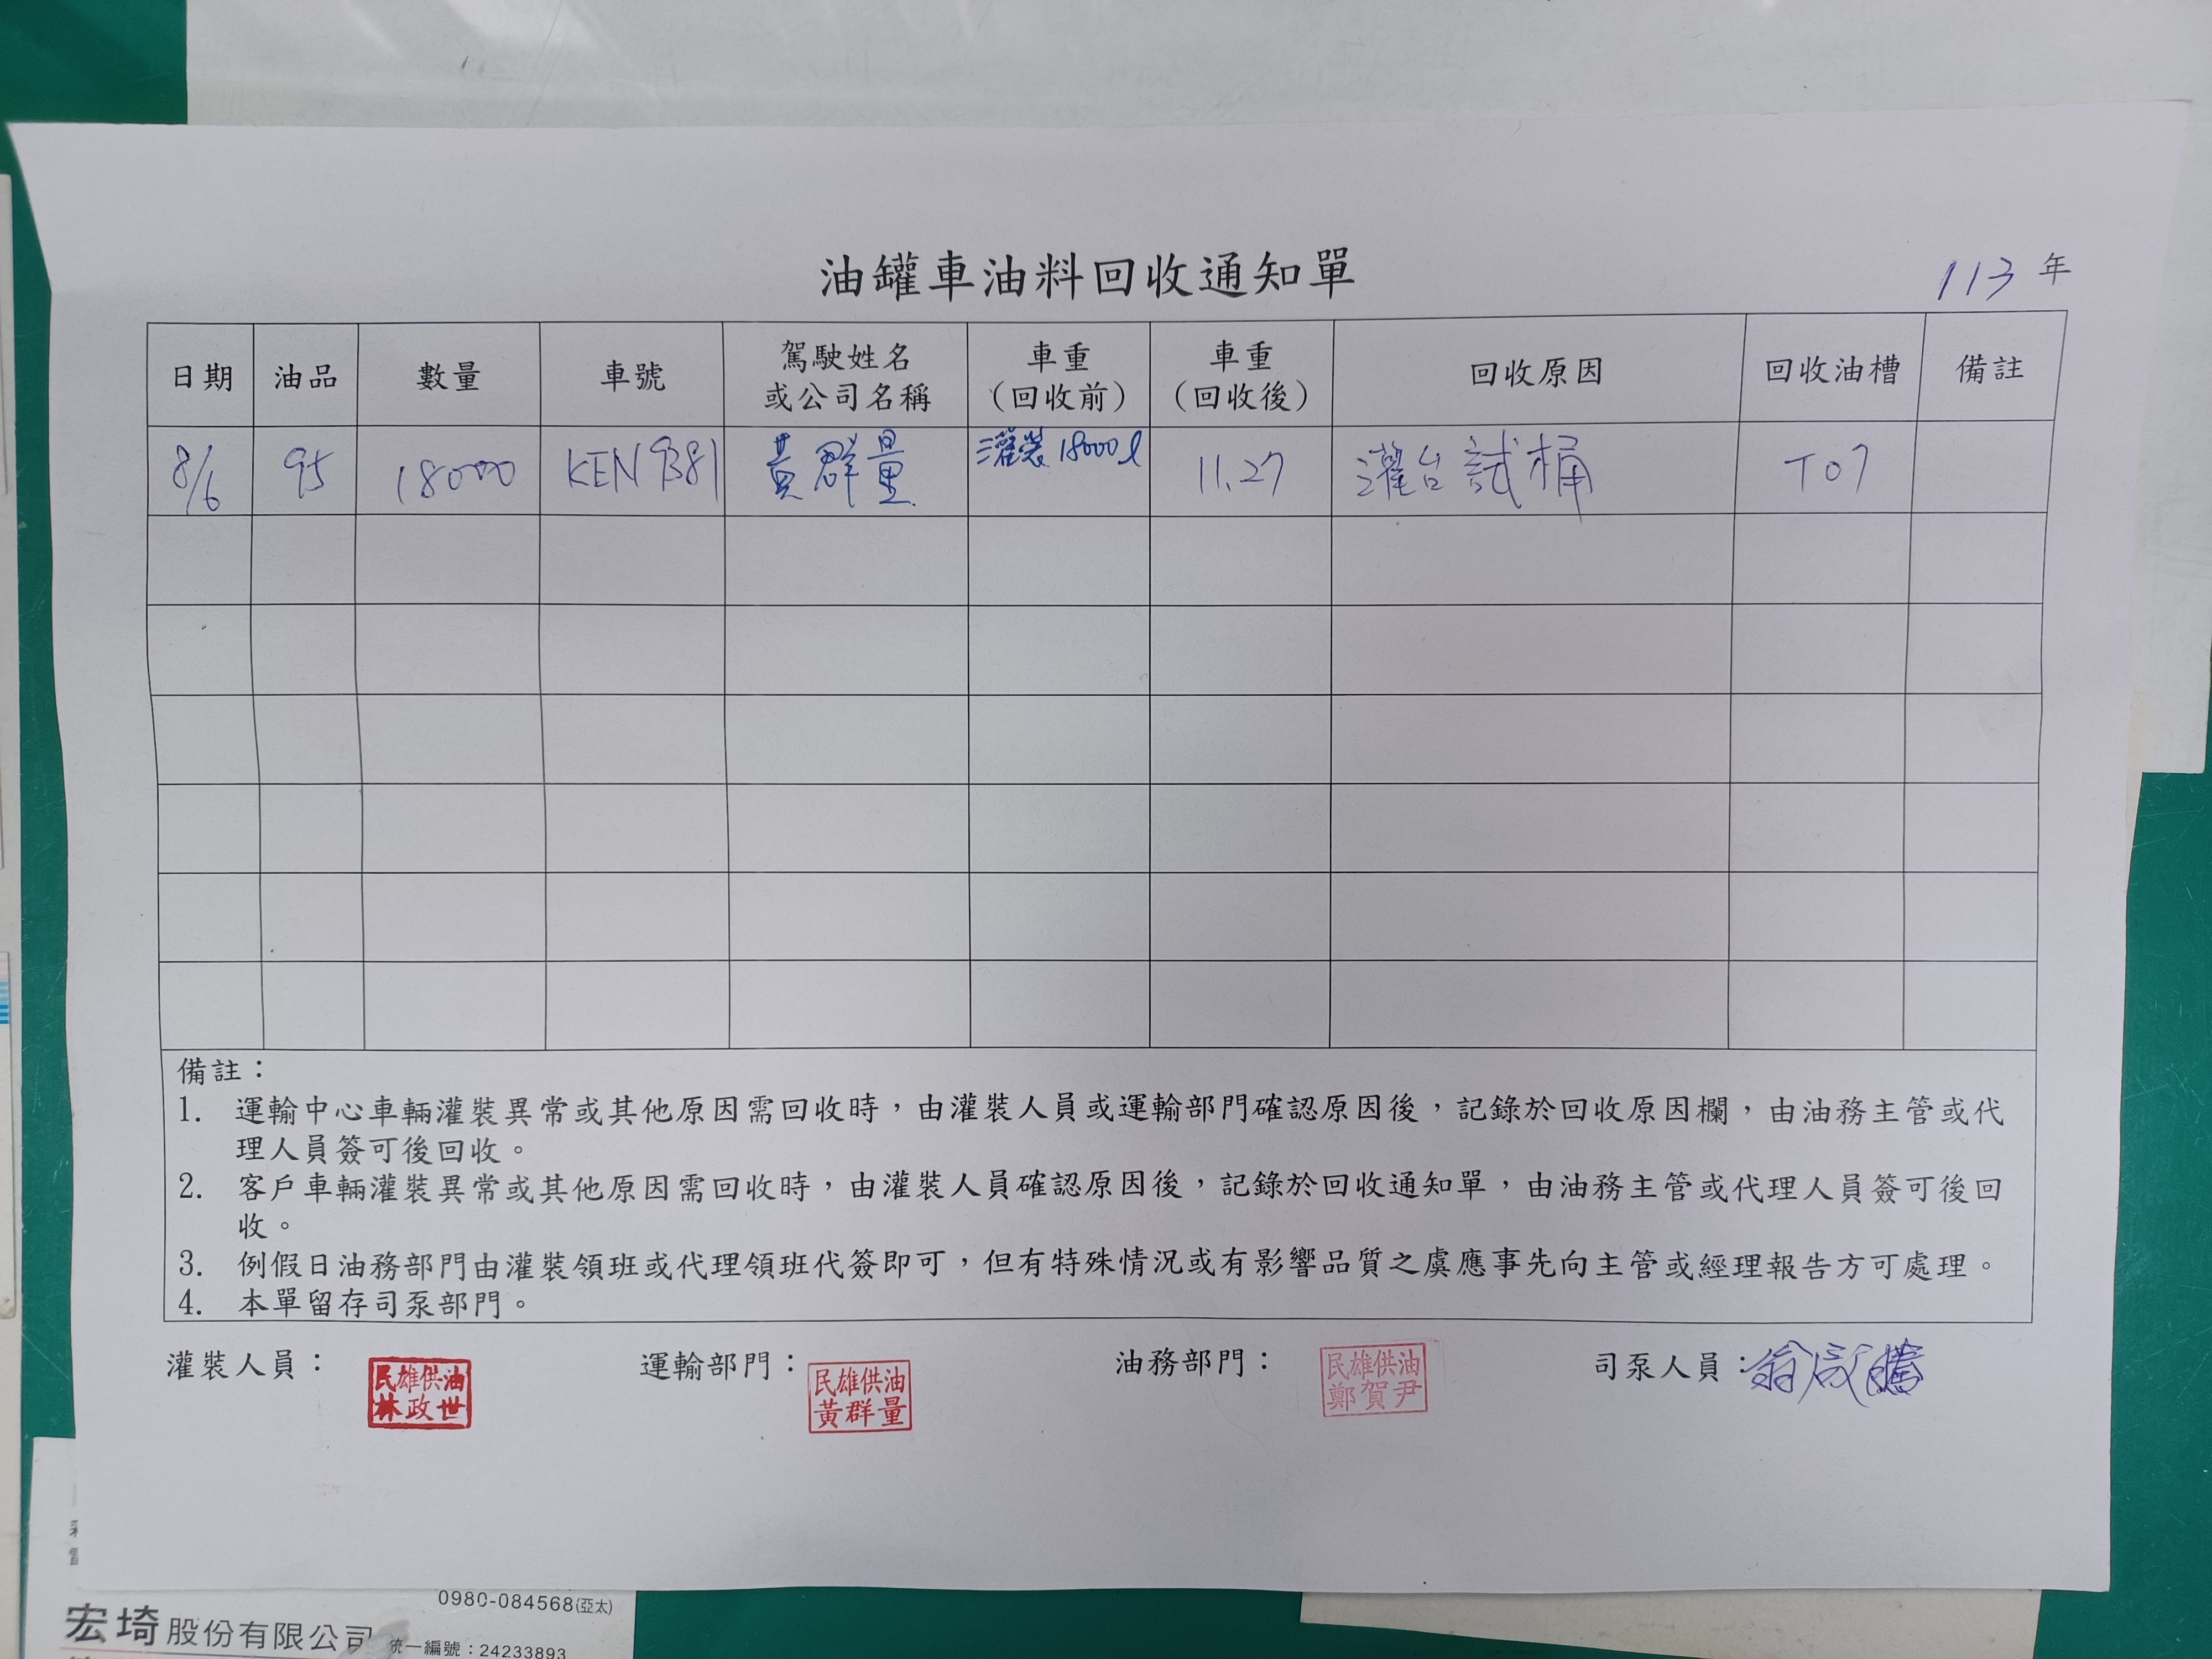 油罐車油料回收通知單
113 年
日期 油品 數量 車號 駕駛姓名或公司名稱 車重(回收前) 車重(回收後) 回收原因 回收油槽 備註
8/6 95 18000 KEN 9381 黃群量 灌裝18000l 11.27 灌台試桶 T07
備註：
1. 運輸中心車輛灌裝異常或其他原因需回收時，由灌裝人員或運輸部門確認原因後，記錄於回收原因欄，由油務主管或代
理人員簽可後回收。
2. 客戶車輛灌裝異常或其他原因需回收時，由灌裝人員確認原因後，記錄於回收通知單，由油務主管或代理人員簽可後回
收。
3. 例假日油務部門由灌裝領班或代理領班代簽即可，但有特殊情況或有影響品質之虞應事先向主管或經理報告方可處理。
4. 本單留存司泵部門。
灌裝人員： 運輸部門： 油務部門： 司泵人員：
民雄供油
林政世
民雄供油
黃群量
民雄供油
鄭賀尹
0980-084568(亞太)
宏埼股份有限公司 統一編號：24233893